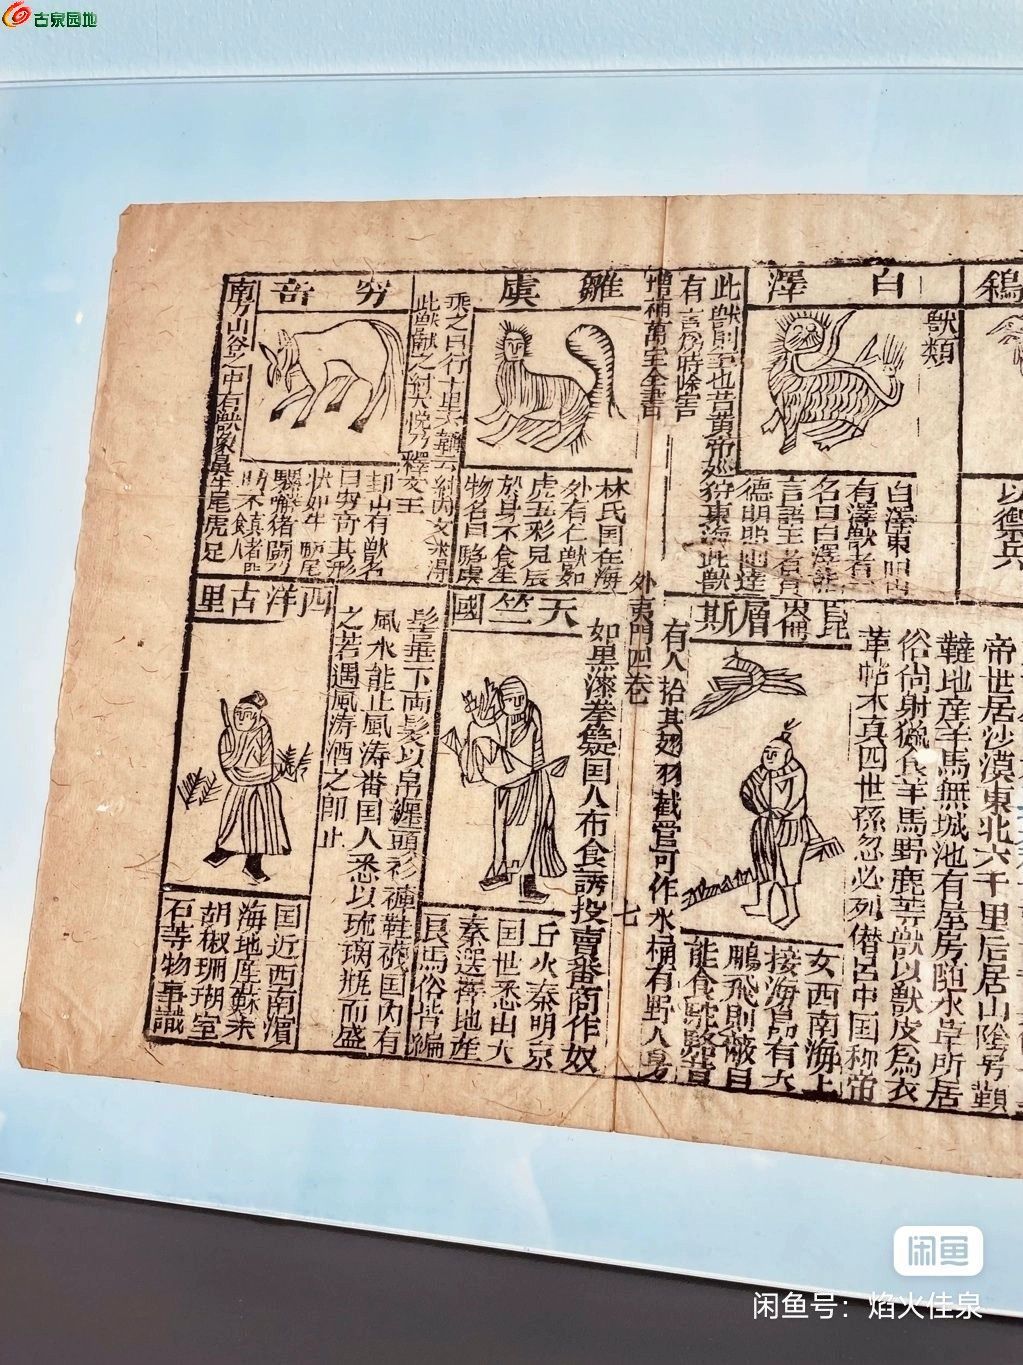 古泉园地
鵎
以禦兵
獸類
白澤
有澤獸者
名曰白澤能
言語王者有
德明照幽遠
此獸則至也昔黃帝巡狩東海此獸
有言為時除害
增補萬宝全書
外夷門四卷
七
雛虞
林氏国在海
外有仁獸如
虎五彩見辰
於身不食生
物名曰騶虞
乘之日行十里六韜云紂囚文王
此獸獻之紂大悅乃釋文王
穷奇
邽山有獸名
曰穷奇其形
状如牛
南方山谷之中有獸象鼻牛尾虎足
帝世居沙漠東北六千里后居山陰号韃
韃地産羊馬無城池有屋房随水草所居
俗尚射獵食羊馬野鹿等獸以獸皮為衣
革帖木真四世孫忽必列僣呂中国称帝
崑崙層斯
女西南海上
接海島有大
鵬飛則蔽日
能食駝駱昔
有人拾其翅羽截管可作水桶有野人身
如黒漆拳髮国人布食誘投賣番商作奴
天竺國
国世悉出大
秦選擇地産
良馬俗皆編
髪垂下両髪以帛纏頭衫褲鞋襪国内有
風水能止風涛番国人悉以琉璃瓶而盛
之若遇風涛酒之即止
西洋古里
国近西南濵
海地産蘇木
胡椒珊瑚室
石等物事識
闲鱼
闲鱼号：焰火佳泉